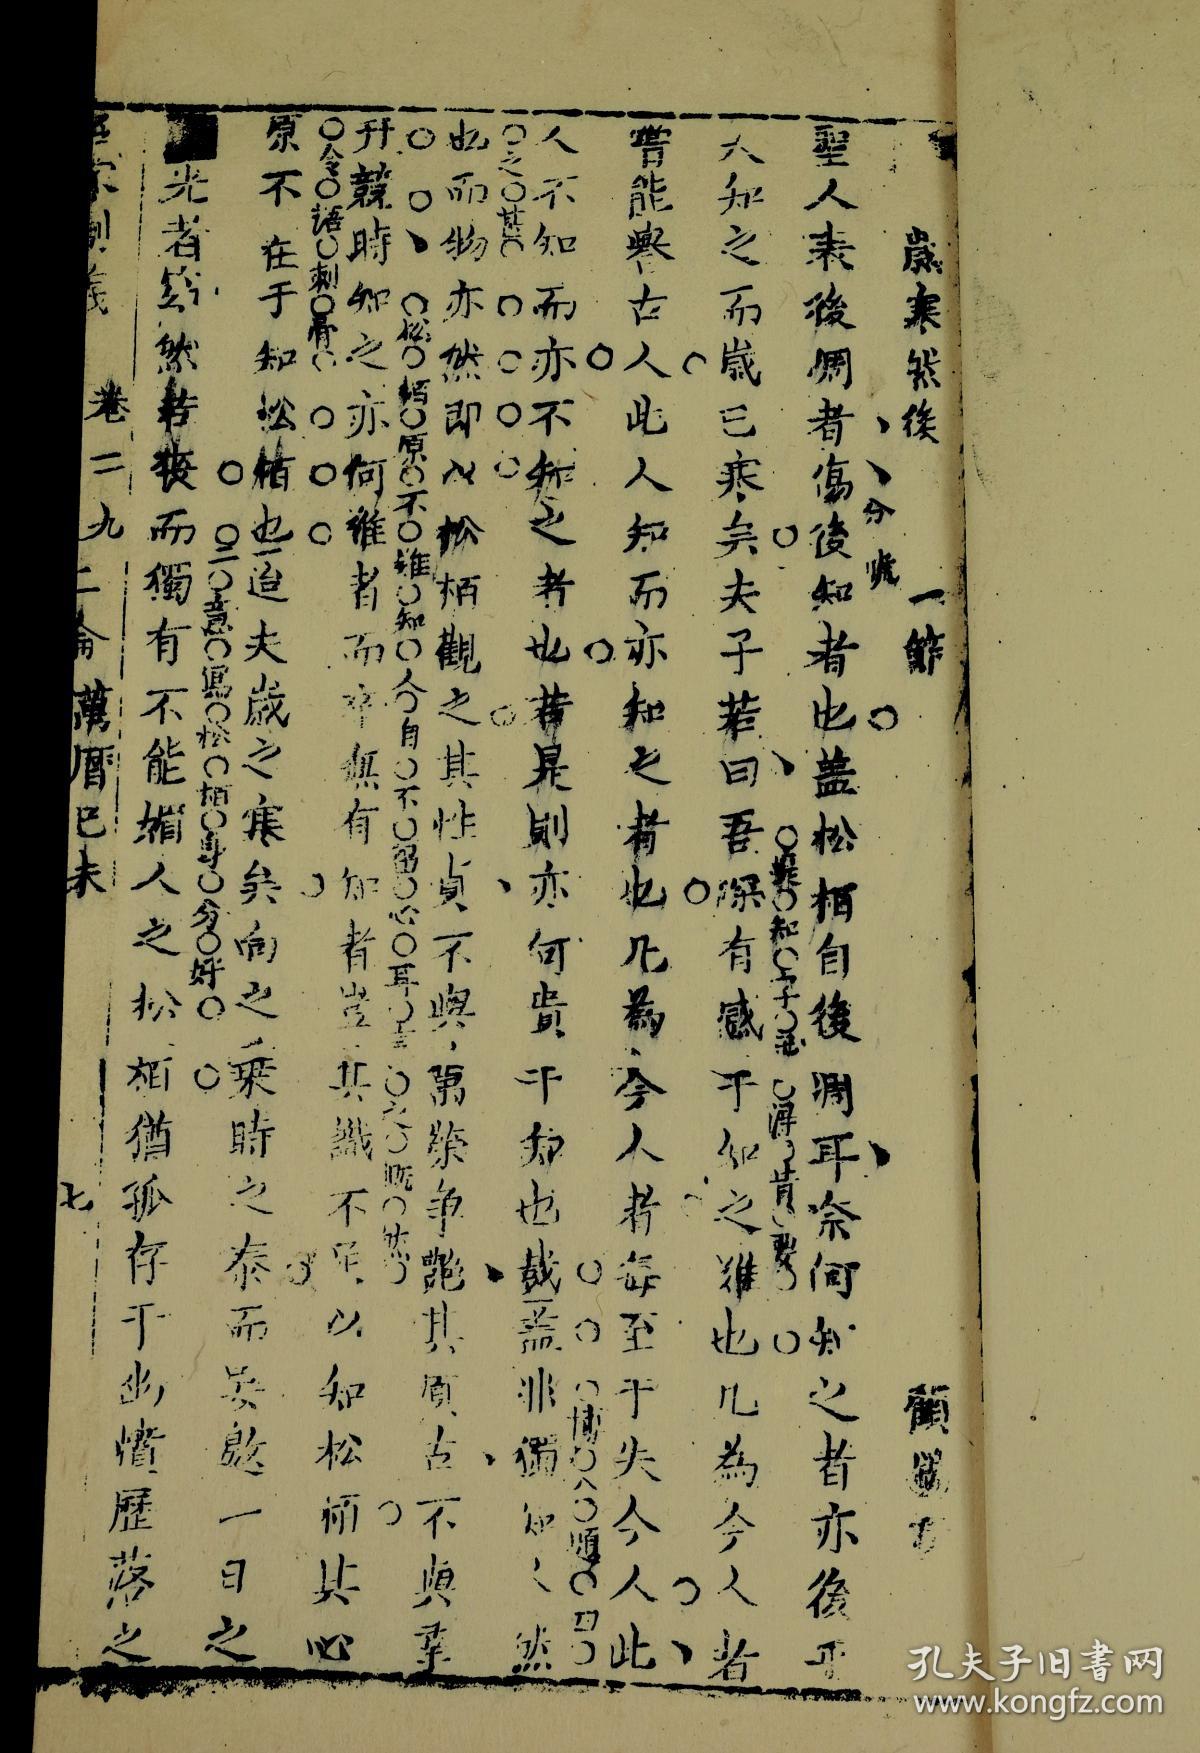 歲寒然後 一節 顧
聖人表後凋者傷後知者也蓋松栢自後凋耳奈何知之者亦後乎
人知之而歲已寒矣夫子若曰吾深有感于知之難也凡為今人者
嘗能譽古人此人知而亦知之者也凡為今人者每至于失今人此
人不知而亦不知之者也若是則亦何貴于知也哉蓋非獨知人然
也而物亦然即以松栢觀之其性貞不與萬榮争艶其質古不與羣
卉競時知之亦何難者而卒無有知者豈其識不足以知松栢其心
原不在于知松栢也迨夫歲之寒矣向之乘時之泰而妄邀一日之
光者紛然若喪而獨有不能媚人之松栢猶孤存于幽憤歷落之
卷二九 二論 萬曆己未 七
分曉
難知
松栢原不難知人自不留心耳
二意寫松栢身分好
孔夫子旧书网
www.kongfz.com